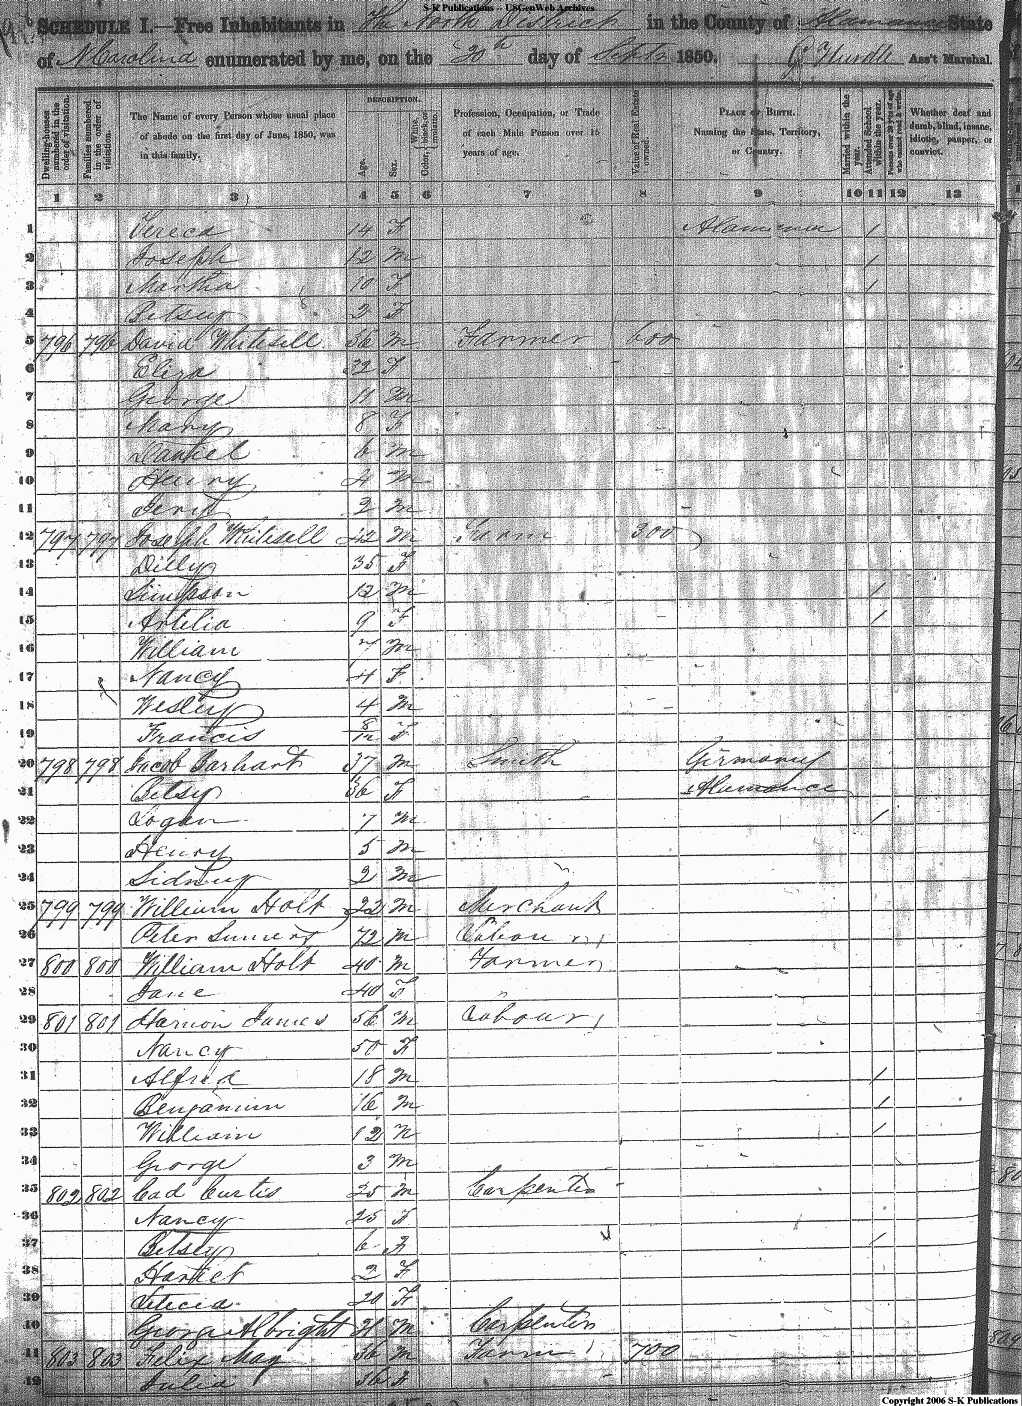 S-K Publications -- USGenWeb Archives
SCHEDULE I.—Free Inhabitants in The North District in the County of Alamance State
of N Carolina enumerated by me, on the 20th day of Septr 1850. Ass't Marshal.
Dwelling-houses numbered in the order of visitation.
Families numbered in the order of visitation.
The Name of every Person whose usual place of abode on the first day of June, 1850, was in this family.
DESCRIPTION.
Age.
Sex.
White, black, or mulatto.
Color,
Profession, Occupation, or Trade of each Male Person over 15 years of age.
Value of Real Estate owned.
PLACE OF BIRTH.
Naming the State, Territory, or Country.
Married within the year.
Attended School within the year.
Persons over 20 y'rs of age who cannot read & write.
Whether deaf and dumb, blind, insane, idiotic, pauper, or convict.
1 2 3 4 5 6 7 8 9 10 11 12 13
1 14 F Alamance 1
2 Joseph 12 M 1
3 Martha 10 F 1
4 Betsey 2 F
5 796 796 David Whitesell 36 M Farmer 600
6 Eliza 32 F
7 George 11 M
8 Mary 8 F
9 Daniel 6 M
10 Henry 4 M
11 2 M
12 797 797 Joseph Whitesell 42 M Farm 300
13 Dilly 35 F
14 Simpson 12 M 1
15 Artelia 9 F 1
16 William 7 M
17 Nancy 4 F
18 Wesley 4 M
19 Francis 8/12 F
20 798 798 Jacob Garhart 37 M Smith Germany
21 Betsy 36 F Alamance
22 Logan 7 M 1
23 Henry 5 M
24 Sidney 2 M
25 799 799 William Holt 22 M Merchant
26 Peter Sumers 72 M Labour
27 800 800 William Holt 40 M Farmer
28 Jane 40 F "
29 801 801 Harmon James 56 M Labour
30 Nancy 50 F
31 Alfred 18 M 1
32 Benjamin 16 M 1
33 William 12 M 1
34 George 3 M
35 802 802 Cad Curtis 25 M Carpenter
36 Nancy 25 F
37 Betsey 6 F 1
38 Hariet 2 F
39 Leticia 20 F
40 George Albright 21 M Carpenter
41 803 803 Felix May 36 M Farm 700
42 Julia 36 F
Copyright 2006 S-K Publications